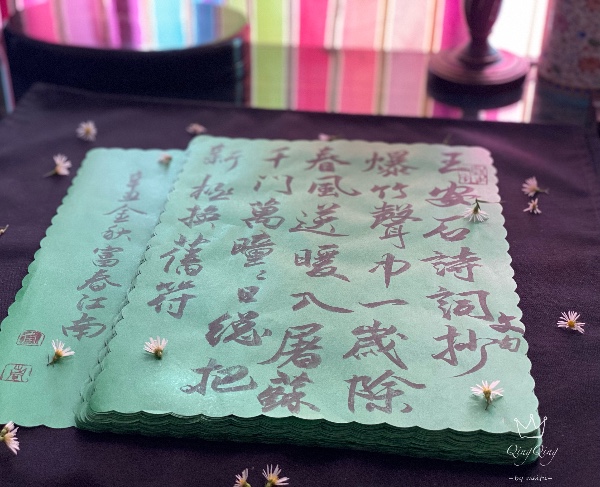 王安石詩詞抄
爆竹聲中一歲除
春風送暖入屠蘇
千門萬瞳〻日總把
新桃換舊符
辛丑金秋富春江南
QingQing